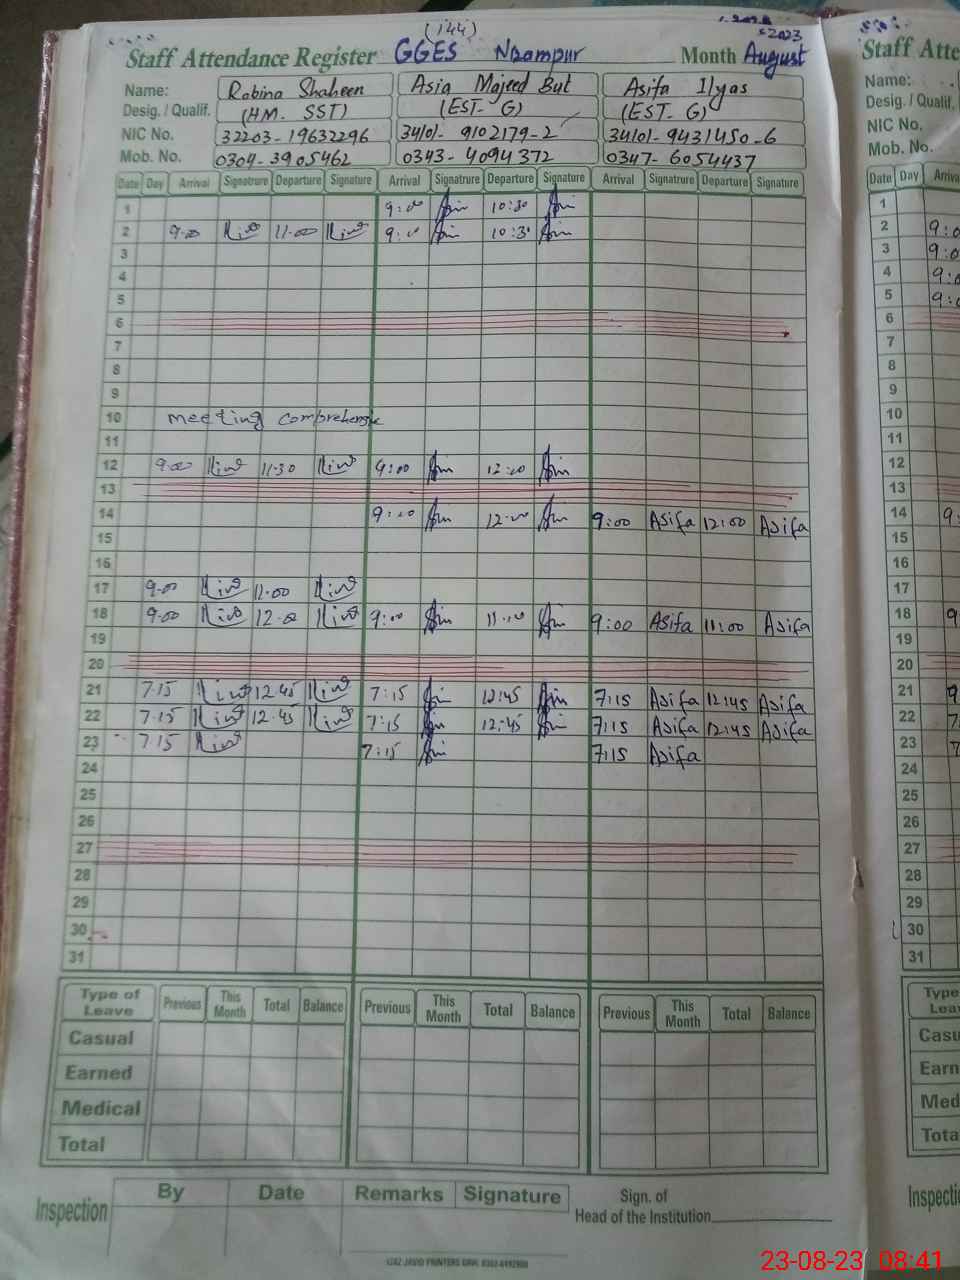 (144)
2023
Staff Attendance Register GGES Nrampur Month August
Name: Robina Shaheen Asia Majeed But Asifa Ilyas
Desig. / Qualif. (HM. SST) (EST- G) (EST. G)
NIC No. 32203-19632296 34101- 9102179-2 34101-9431450-6
Mob. No. 0304-3905462 0343- 4094372 0347- 6054437
Date Day Arrival Signatrure Departure Signature Arrival Signatrure Departure Signature Arrival Signatrure Departure Signature
1 9:00 10:30
2 9-00 11-00 9:00 10:30
3
4
5
6
7
8
9
10 meeting comprehensive
11
12 9-00 11-30 9:00 12:00
13
14 9:00 12:00 9:00 Asifa 12:00 Asifa
15
16
17 9-00 11-00
18 9-00 12-00 9:00 11:00 9:00 Asifa 11:00 Asifa
19
20
21 7-15 12-45 7:15 12:45 7:15 Asifa 12:45 Asifa
22 7-15 12-45 7:15 12:45 7:15 Asifa 12:45 Asifa
23 7-15 7:15 7:15 Asifa
24
25
26
27
28
29
30
31
Type of Leave Previous This Month Total Balance Previous This Month Total Balance Previous This Month Total Balance
Casual
Earned
Medical
Total
Inspection By Date Remarks Signature Sign. of
Head of the Institution
Staff Atte
Name:
Desig. / Qualif.
NIC No.
Mob. No.
Date Day Arriva
1
2 9:0
3 9:0
4 9:0
5 9:0
6
7
8
9
10
11
12
13
14 9
15
16
17
18 9
19
20
21 9
22 7
23 7
24
25
26
27
28
29
30
31
Type
Lea
Casu
Earn
Med
Tota
Inspecti
23-08-23 08:41